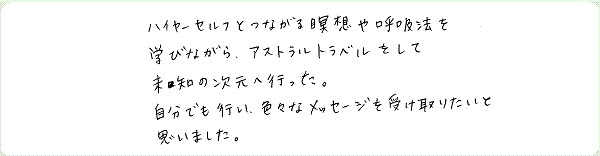 ハイヤーセルフとつながる瞑想や呼吸法を
学びながら、アストラルトラベルをして
未知の次元へ行った。
自分でも行い、色々なメッセージを受け取りたいと
思いました。